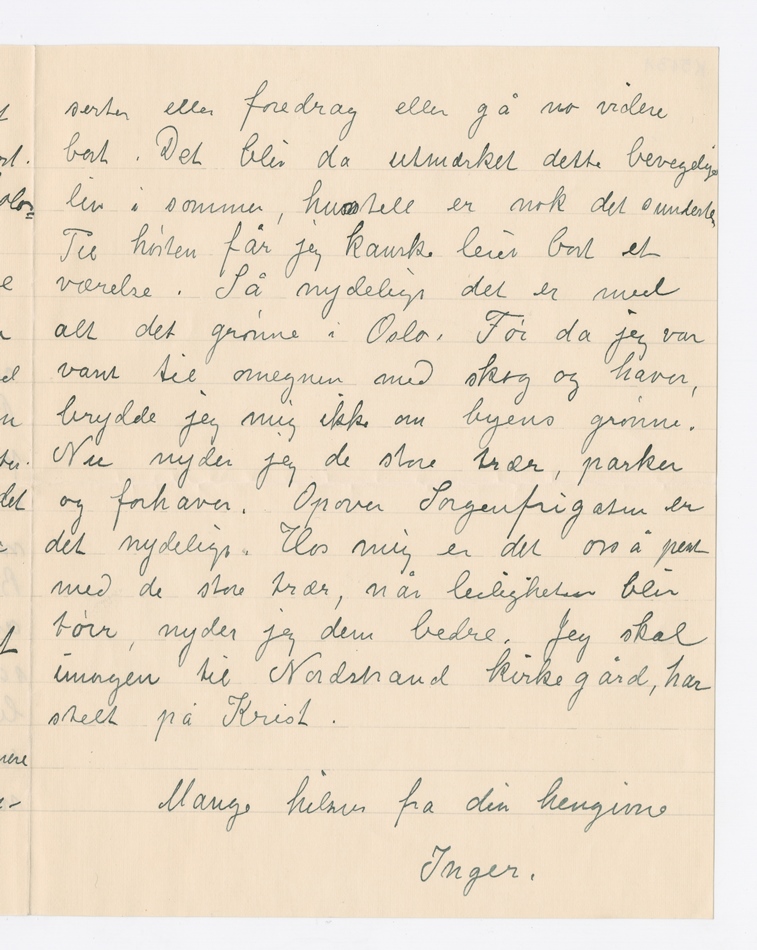 serter eller foredrag eller gå no videre
bort. Det blir da utmærket dette bevegelige
liv i sommer, husstell er nok det sundeste.
Til høsten får jeg kanske leiet bort et
værelse. Så nydelig det er med
alt det grønne i Oslo. Før da jeg var
vant til omegnen med skog og haver,
brydde jeg mig ikke om byens grønne.
Nu nyder jeg de store trær, parker
og forhaver. Opover Sorgenfrigaten er
det nydelig. Hos mig er det også pent
med de store trær, når leiligheten blir
tørr, nyder jeg dem bedre. Jeg skal
imorgen til Nordstrand kirkegård, har
stelt på Krist.
Mange hilsner fra din hengivne
Inger.